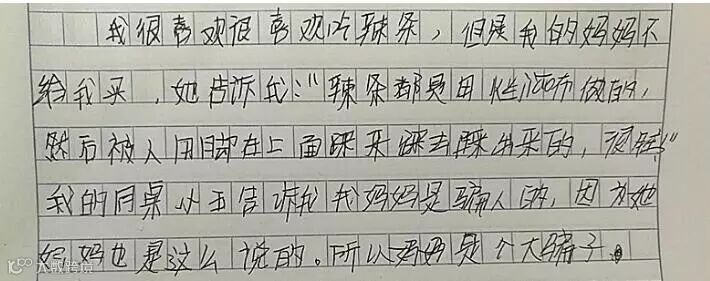 我很喜欢很喜欢吃辣条，但是我的妈妈不
给我买，她告诉我：“辣条都是用烂泥布做的，
然后被人用脚在上面踩来踩去踩出来的，很脏”
我的同桌小王告诉我我妈妈是骗人的，因为她
妈妈也是这么说的。所以妈妈是个大骗子。
大数跨境